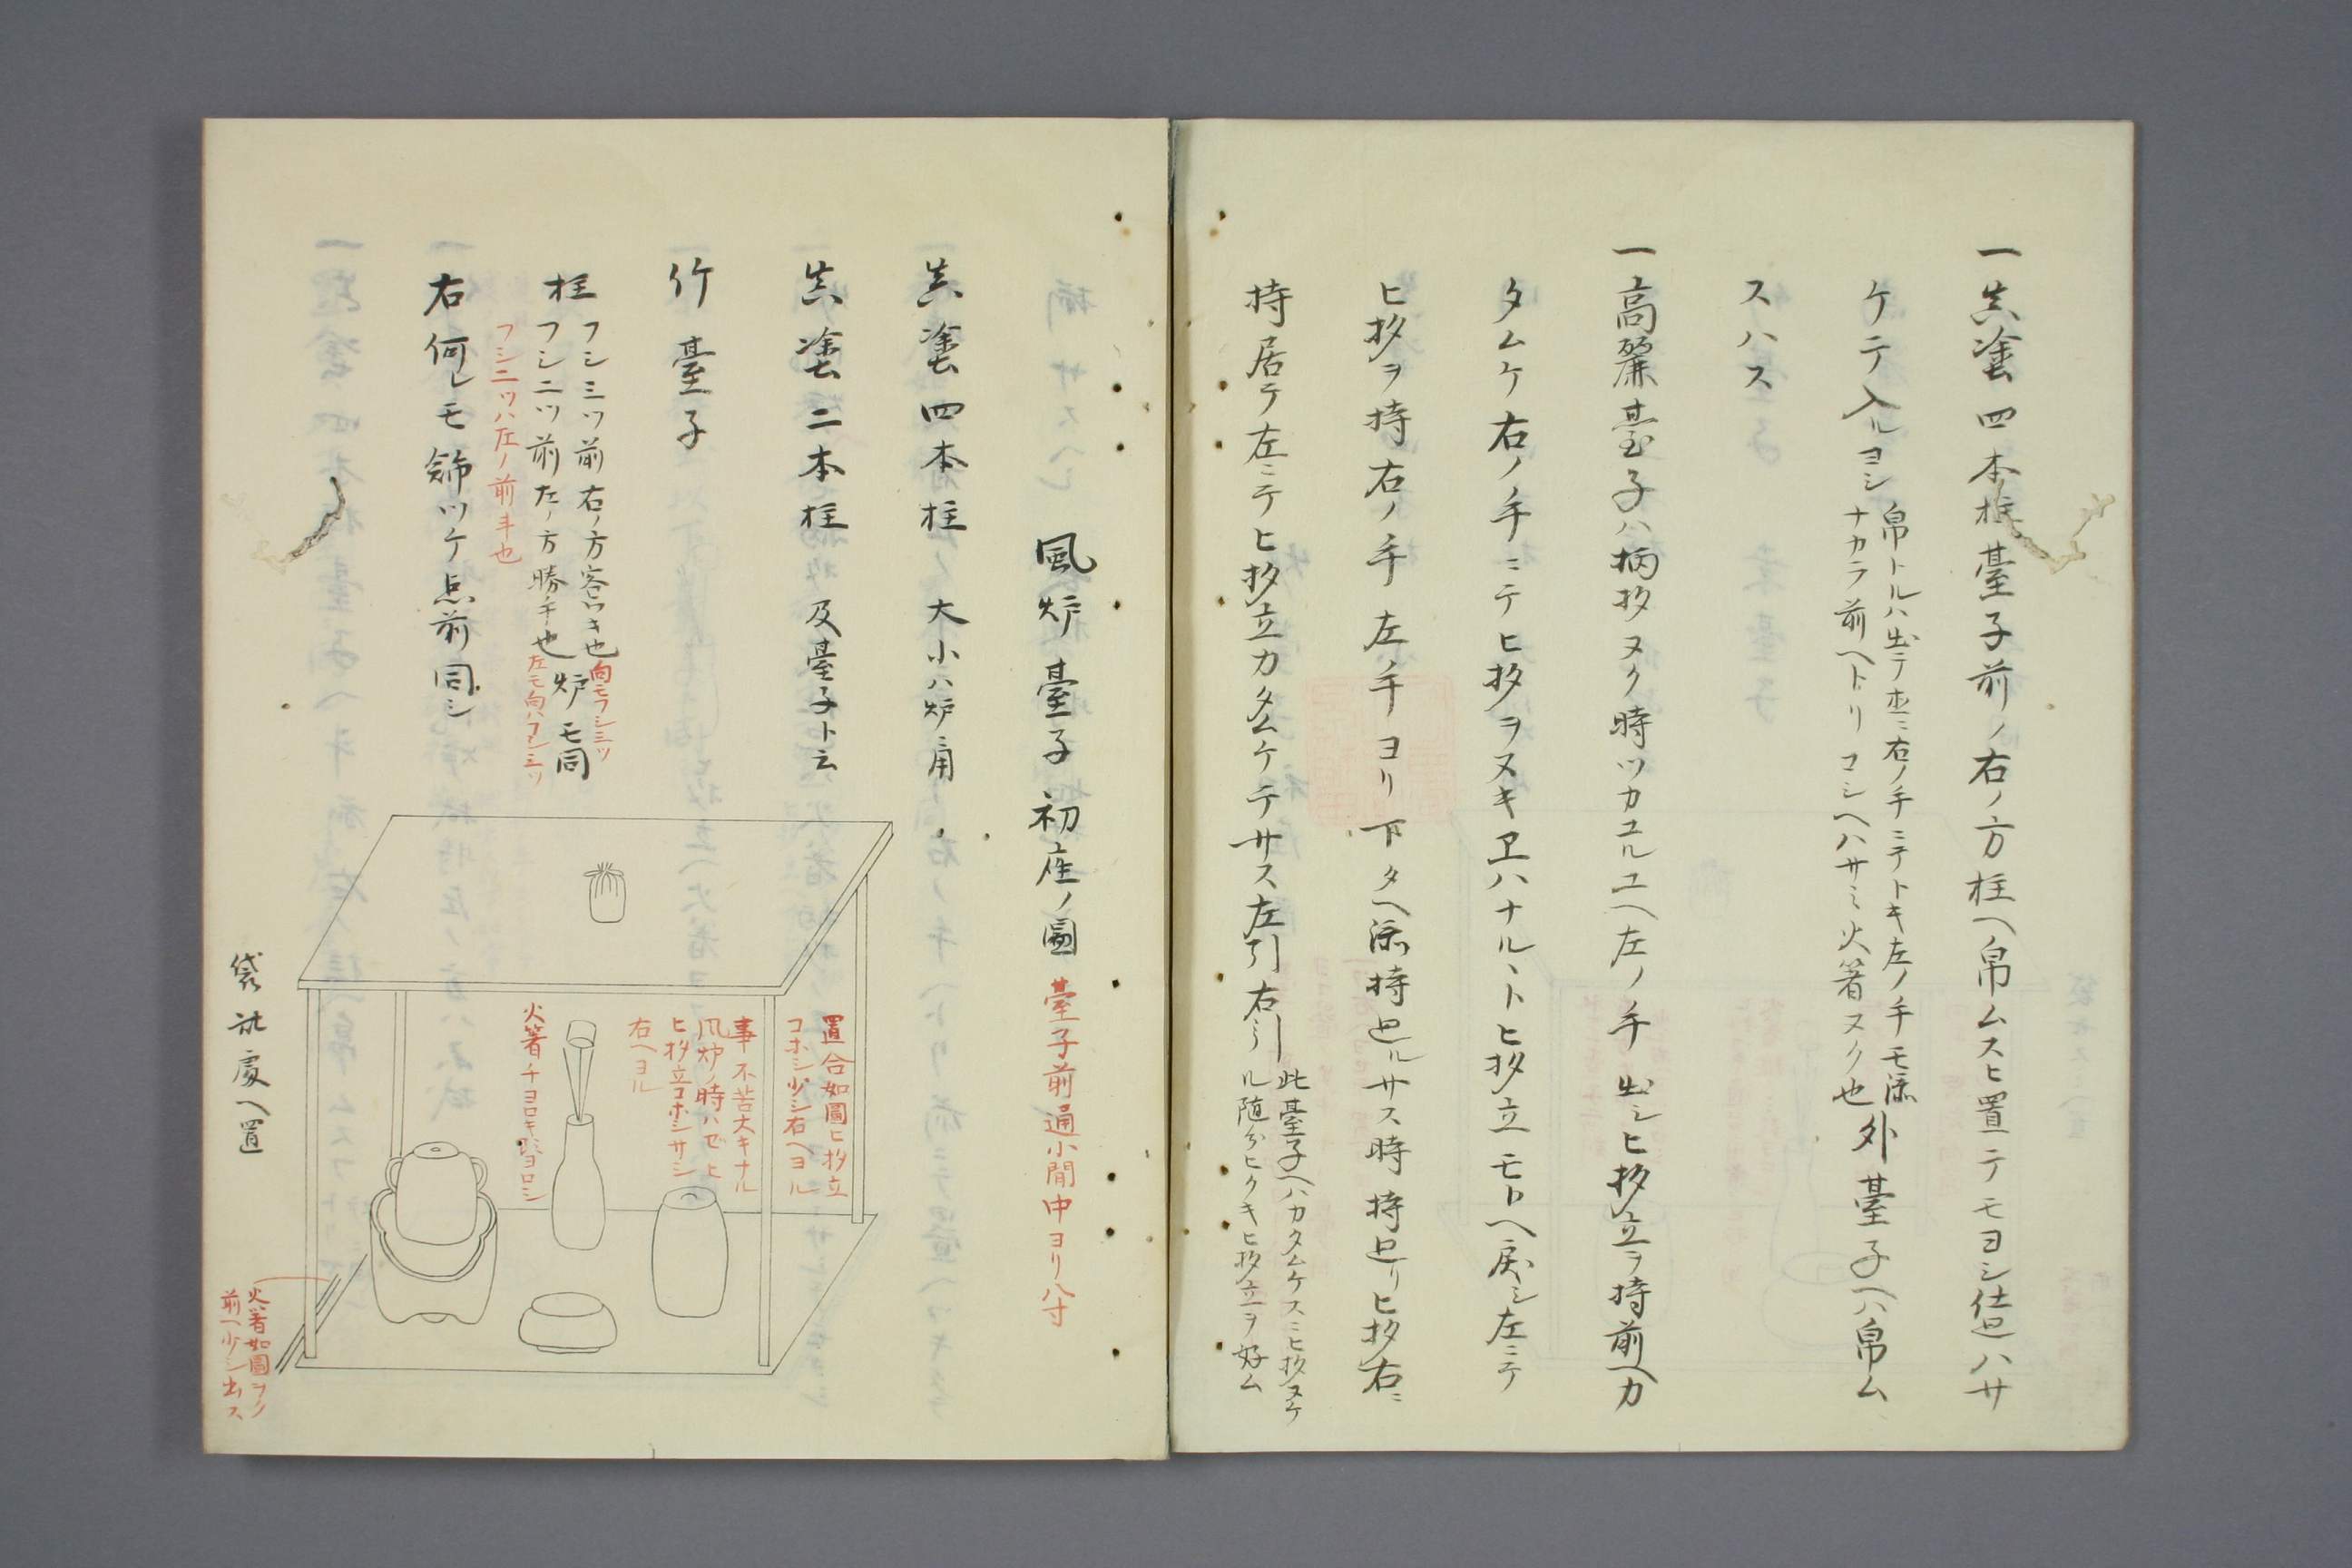 一 真塗四本柱臺子前ノ右ノ方柱ヘ帛ムスヒ置テモヨシ仕廻ハサ
ケテ入ルヨシ
帛トルハ出テ其ニ右ノ手ニテトキ左ノ手モ添
ナカラ前ヘトリコシヘハサミ火箸ヌク也
外臺子ヘハ帛ム
スハス
一 高麗臺子ハ柄杓ヌク時ツカユルユヘ左ノ手出シヒ杓立ヲ持前ヘカ
タムケ右ノ手ニテヒ杓ヲヌキ卫ハナルヽトヒ杓立モトヘ戻シ左ニテ
ヒ杓ヲ持右ノ手左手ヨリ下タヘ添持廻ルサス時持廻リヒ杓右ニ
持居テ左ニテヒ杓立カタムケテサス左引右引
此臺子ヘハカタムケスニヒ杓ヌケ
ル随分ヒクキヒ杓立ヲ好ム
風炉臺子初座ノ圖
臺子前通小間中ヨリ八寸
真塗四本柱 大小ハ炉角
真塗二本柱 及臺子ト云
竹臺子
柱
フシミツ前右ノ方客ツキ也
向モフシミツ
フシ二ツ前左ノ方勝手也
左モ向ハフシミツ
炉モ同
フシ二ツハ左ノ前斗也
右何レモ餝ツケ点前同シ
置合如圖ヒ杓立
コホシ少シ右ヘヨル
事不苦大キナル
風炉ノ時ハゼヒ
ヒ杓立コホシサシ
右ヘヨル
火箸チヨロキ形ヨロシ
袋此處ヘ置
火箸如圖ラノ
前ヘ少シ出ス